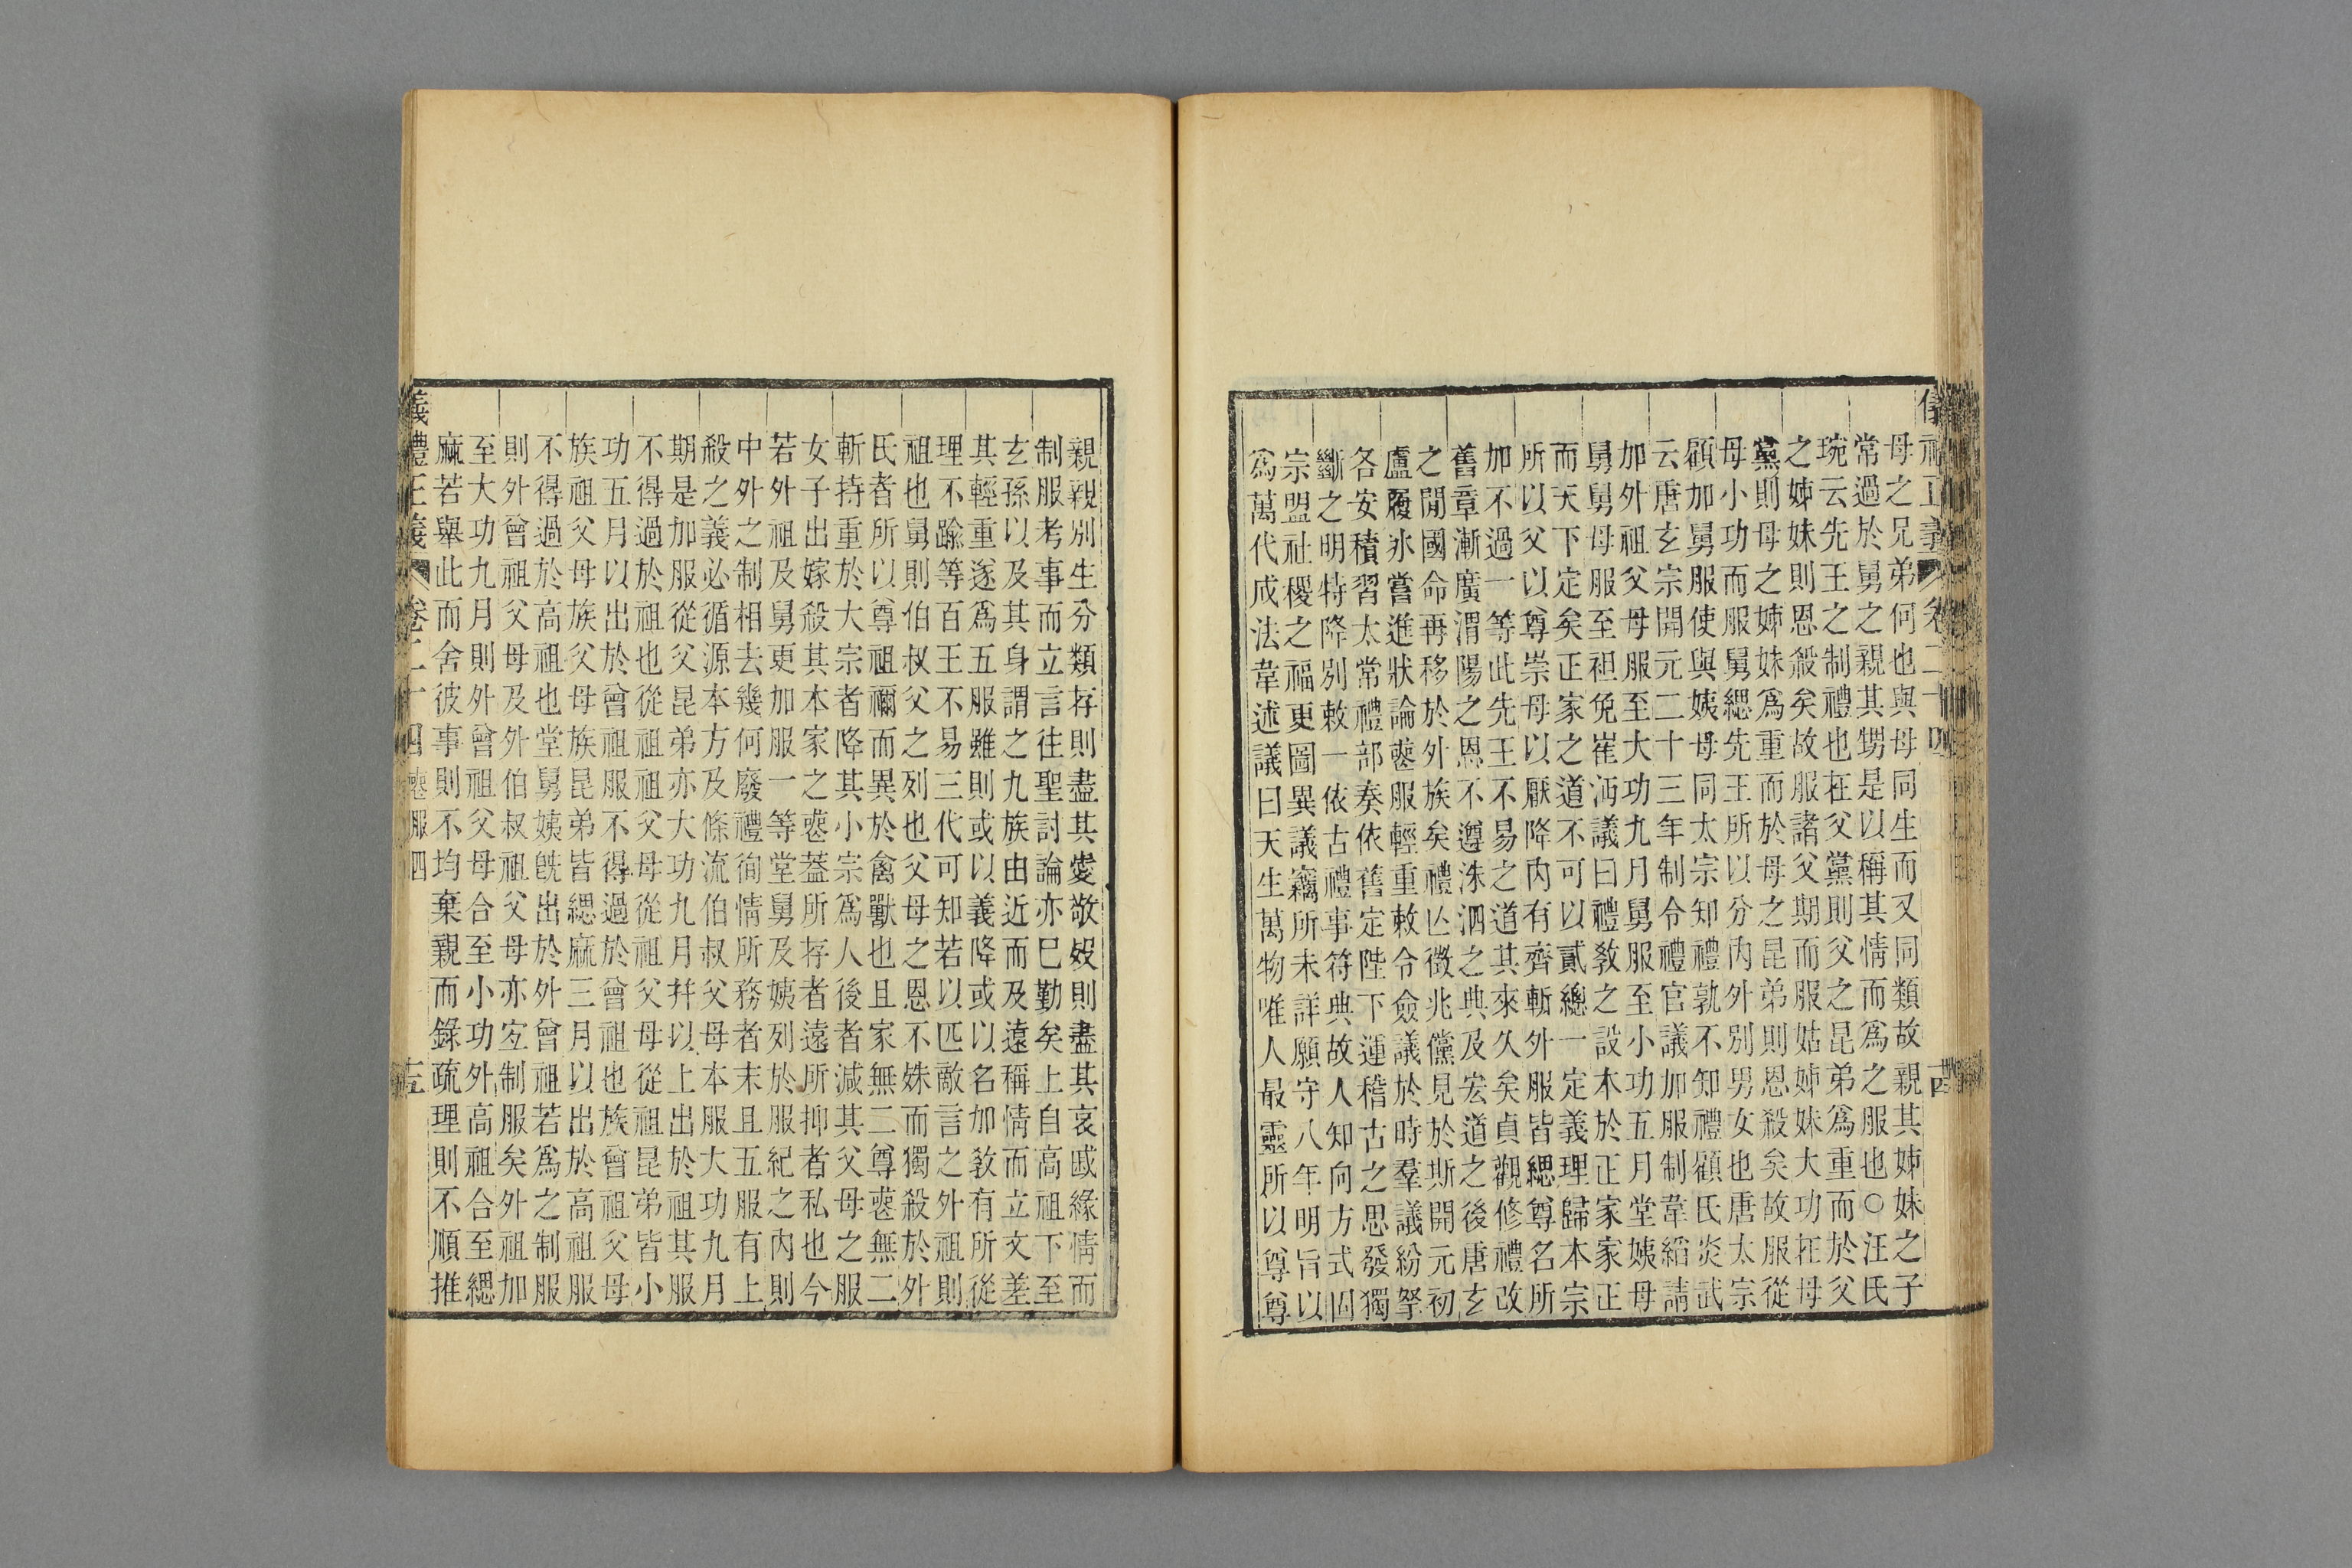 儀禮正義 卷二十四 十四
母之兄弟何也與母同生而又同類故親其姊妹之子
常過於舅之親其甥是以稱其情而爲之服也○汪氏
琬云先王之制禮也在父黨則父之昆弟爲重而於父
之姊妹則恩殺矣故服諸父期而服姑姊妹大功在母
黨則母之姊妹爲重而於母之昆弟則恩殺矣故服從
母小功而服舅緦先王所以分內外別男女也唐太宗
顧加舅服使與姨母同太宗知禮孰不知禮顧氏炎武
云唐玄宗開元二十三年制令禮官議加服制韋縚請
加外祖父母服至大功九月舅服至小功五月堂姨母
舅舅母服至袒免崔沔議曰禮敎之設木於正家家正
而天下定矣正家之道不可以貳總一定義理歸本宗
所以父以尊崇母以厭降內有齊斬外服皆緦尊名所
加不過一等此先王不易之道其來久矣貞觀修禮改
舊章漸廣渭陽之恩不遵洙泗之典及宏道之後唐玄
之閒國命再移於外族矣禮亾徵兆儻見於斯開元初
盧履氷嘗進狀論喪服輕重敕令僉議於時羣議紛拏
各安積習太常禮部奏依舊定陛下運稽古之思發獨
斷之明特降別敕一依古禮事符典故人知向方式固
宗盟社稷之福更圖異議竊所未詳願守八年明旨以
爲萬代成法韋述議曰天生萬物唯人最靈所以尊尊
親親別生分類存則盡其愛敬歿則盡其哀戚緣情而
制服考事而立言往聖討論亦已勤矣上自高祖下至
玄孫以及其身謂之九族由近而及遠稱情而立文差
其輕重遂爲五服雖則或以義降或以名加敎有所從
理不踰等百王不易三代可知若以匹敵言之外祖則
祖也舅則伯叔父之列也父母之恩不姝而獨殺於外
氏者所以尊祖禰而異於禽獸也且家無二尊喪無二
斬持重於大宗者降其小宗爲人後者減其父母之服
女子出嫁殺其本家之喪蓋所存者遠所抑者私也今
若外祖及舅更加服一等堂舅及姨列於服紀之內則
中外之制相去幾何廢禮徇情所務者末且五服有上
殺之義必循源本方及條流伯叔父母本服大功九月
期是加服從父昆弟亦大功九月幷以上出於祖其服
不得過於祖也從祖祖父母從祖父母從祖昆弟皆小
功五月以出於曾祖服不得過於曾祖也族曾祖父母
族祖父母族父母族昆弟皆緦麻三月以出於高祖服
不得過於高祖也堂舅姨旣出於外曾祖若爲之制服
則外曾祖父母及外伯叔祖父母亦宜制服矣外祖加
至大功九月則外曾祖父母合至小功外高祖合至緦
麻若舉此而舍彼事則不均棄親而錄疏理則不順推
儀禮正義 卷二十四 喪服四 十五